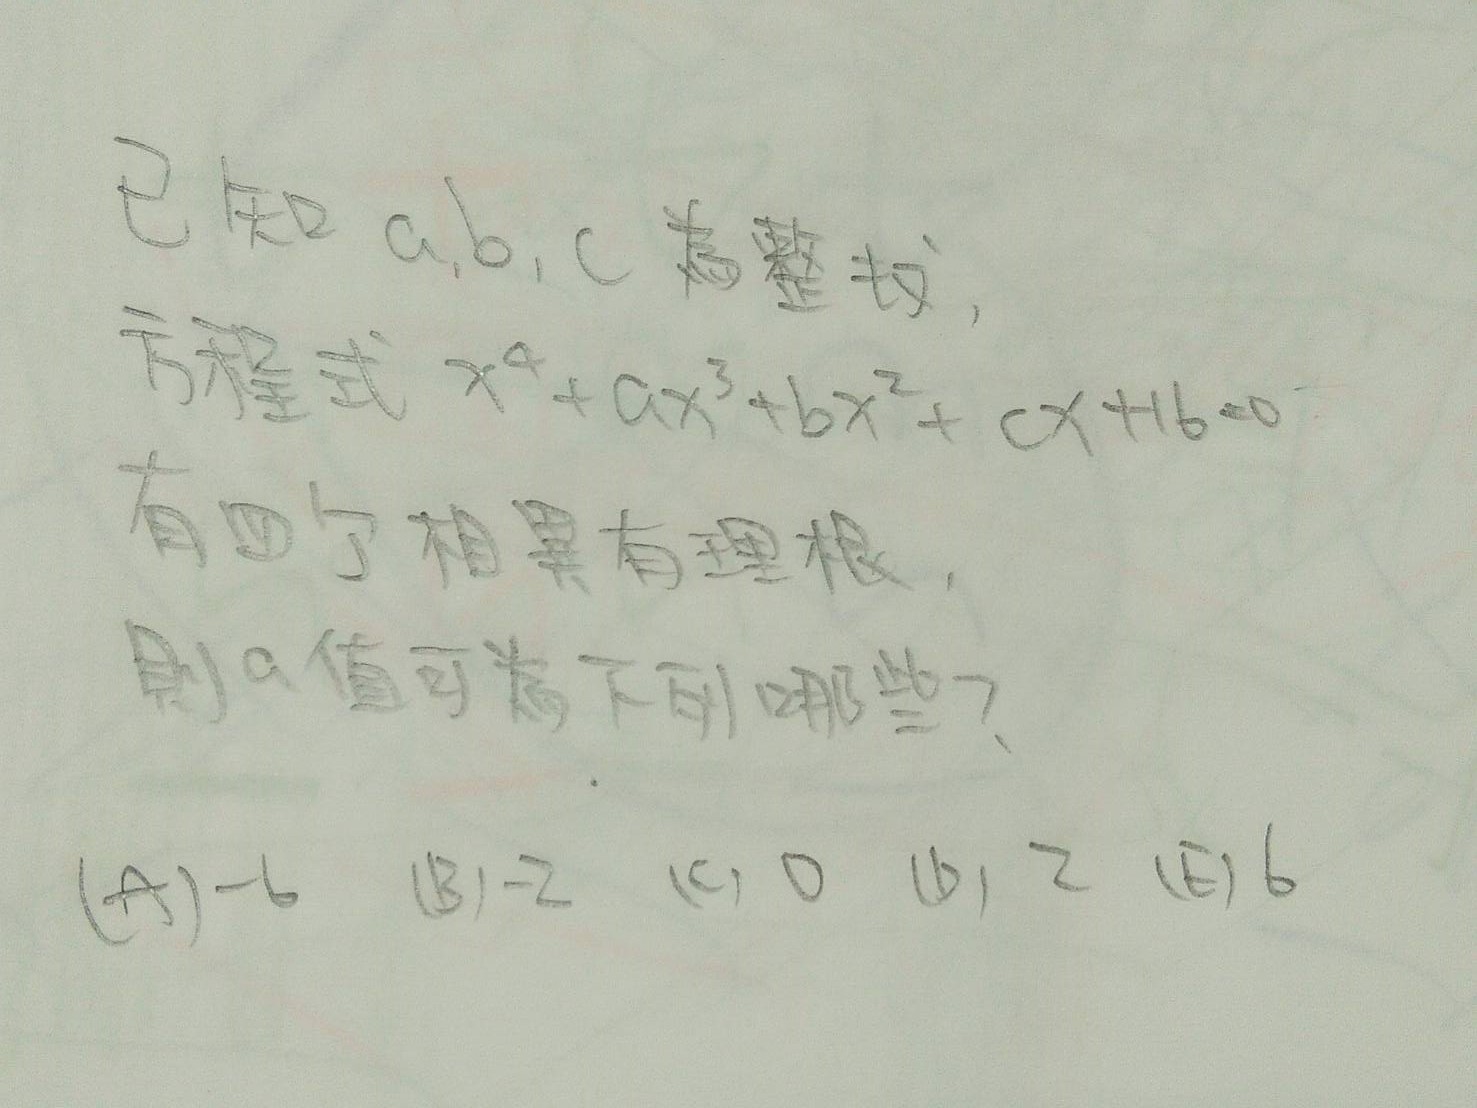 已知 a,b,c 為整数,
方程式 x⁴+ax³+bx²+cx+16=0
有四个相異有理根,
則a值可為下列哪些?
(A)-6 (B)-2 (C) 0 (D) 2 (E) 6